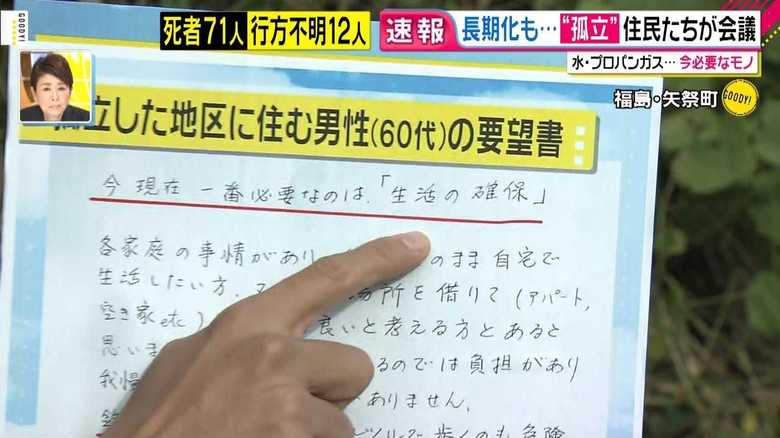 GOODY!
死者71人 行方不明12人 速報 長期化も…“孤立”住民たちが会議
水・プロパンガス…今必要なモノ
福島・矢祭町 GOODY!
立した地区に住む男性(60代)の要望書
今現在 一番必要なのは、「生活の確保」
各家庭の事情があり のまま自宅で
生活したい方、 場所を借りて(アパート、
空き家etc) 良いと考える方とあると
思いま
我慢 るのでは負担があり
がありません。
歩くのも危険